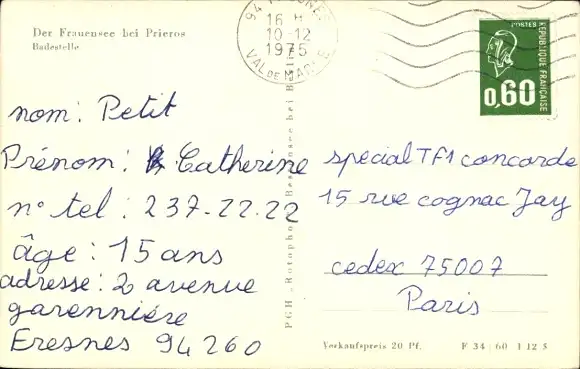 Der Frauensee bei Prieros
Badestelle
16 H
10-12
1975
VAL DE MARNE
POSTES
REPUBLIQUE FRANÇAISE
0,60
nom: Petit
Prénom: Catherine
n° tel : 237-22-22
âge : 15 ans
adresse: 2 avenue
garennière
Fresnes 94260
special TF1 concorde
15 rue cognac Jay
cedex 75007
Paris
PGH „Rotophot" Bestensee bei
Verkaufspreis 20 Pf.
F 34/60 I 12 S